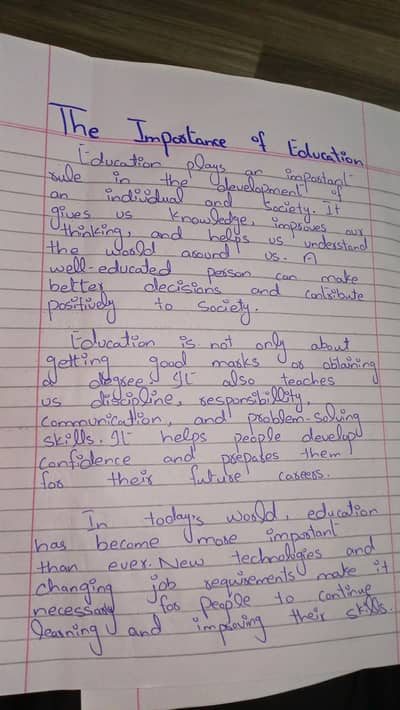 The Importance of Education
Education plays an important
rule in the development of
an individual and society. It
gives us knowledge, improves our
thinking, and helps us understand
the world around us. A
well-educated person can make
better decisions and contribute
positively to society.
Education is not only about
getting good marks or obtaining
a degree. It also teaches
us discipline, responsibility,
communication, and problem-solving
skills. It helps people develop
confidence and prepares them
for their future careers.
In today's world, education
has become more important
than ever. New technologies and
changing job requirements make it
necessary for people to continue
learning and improving their skills.